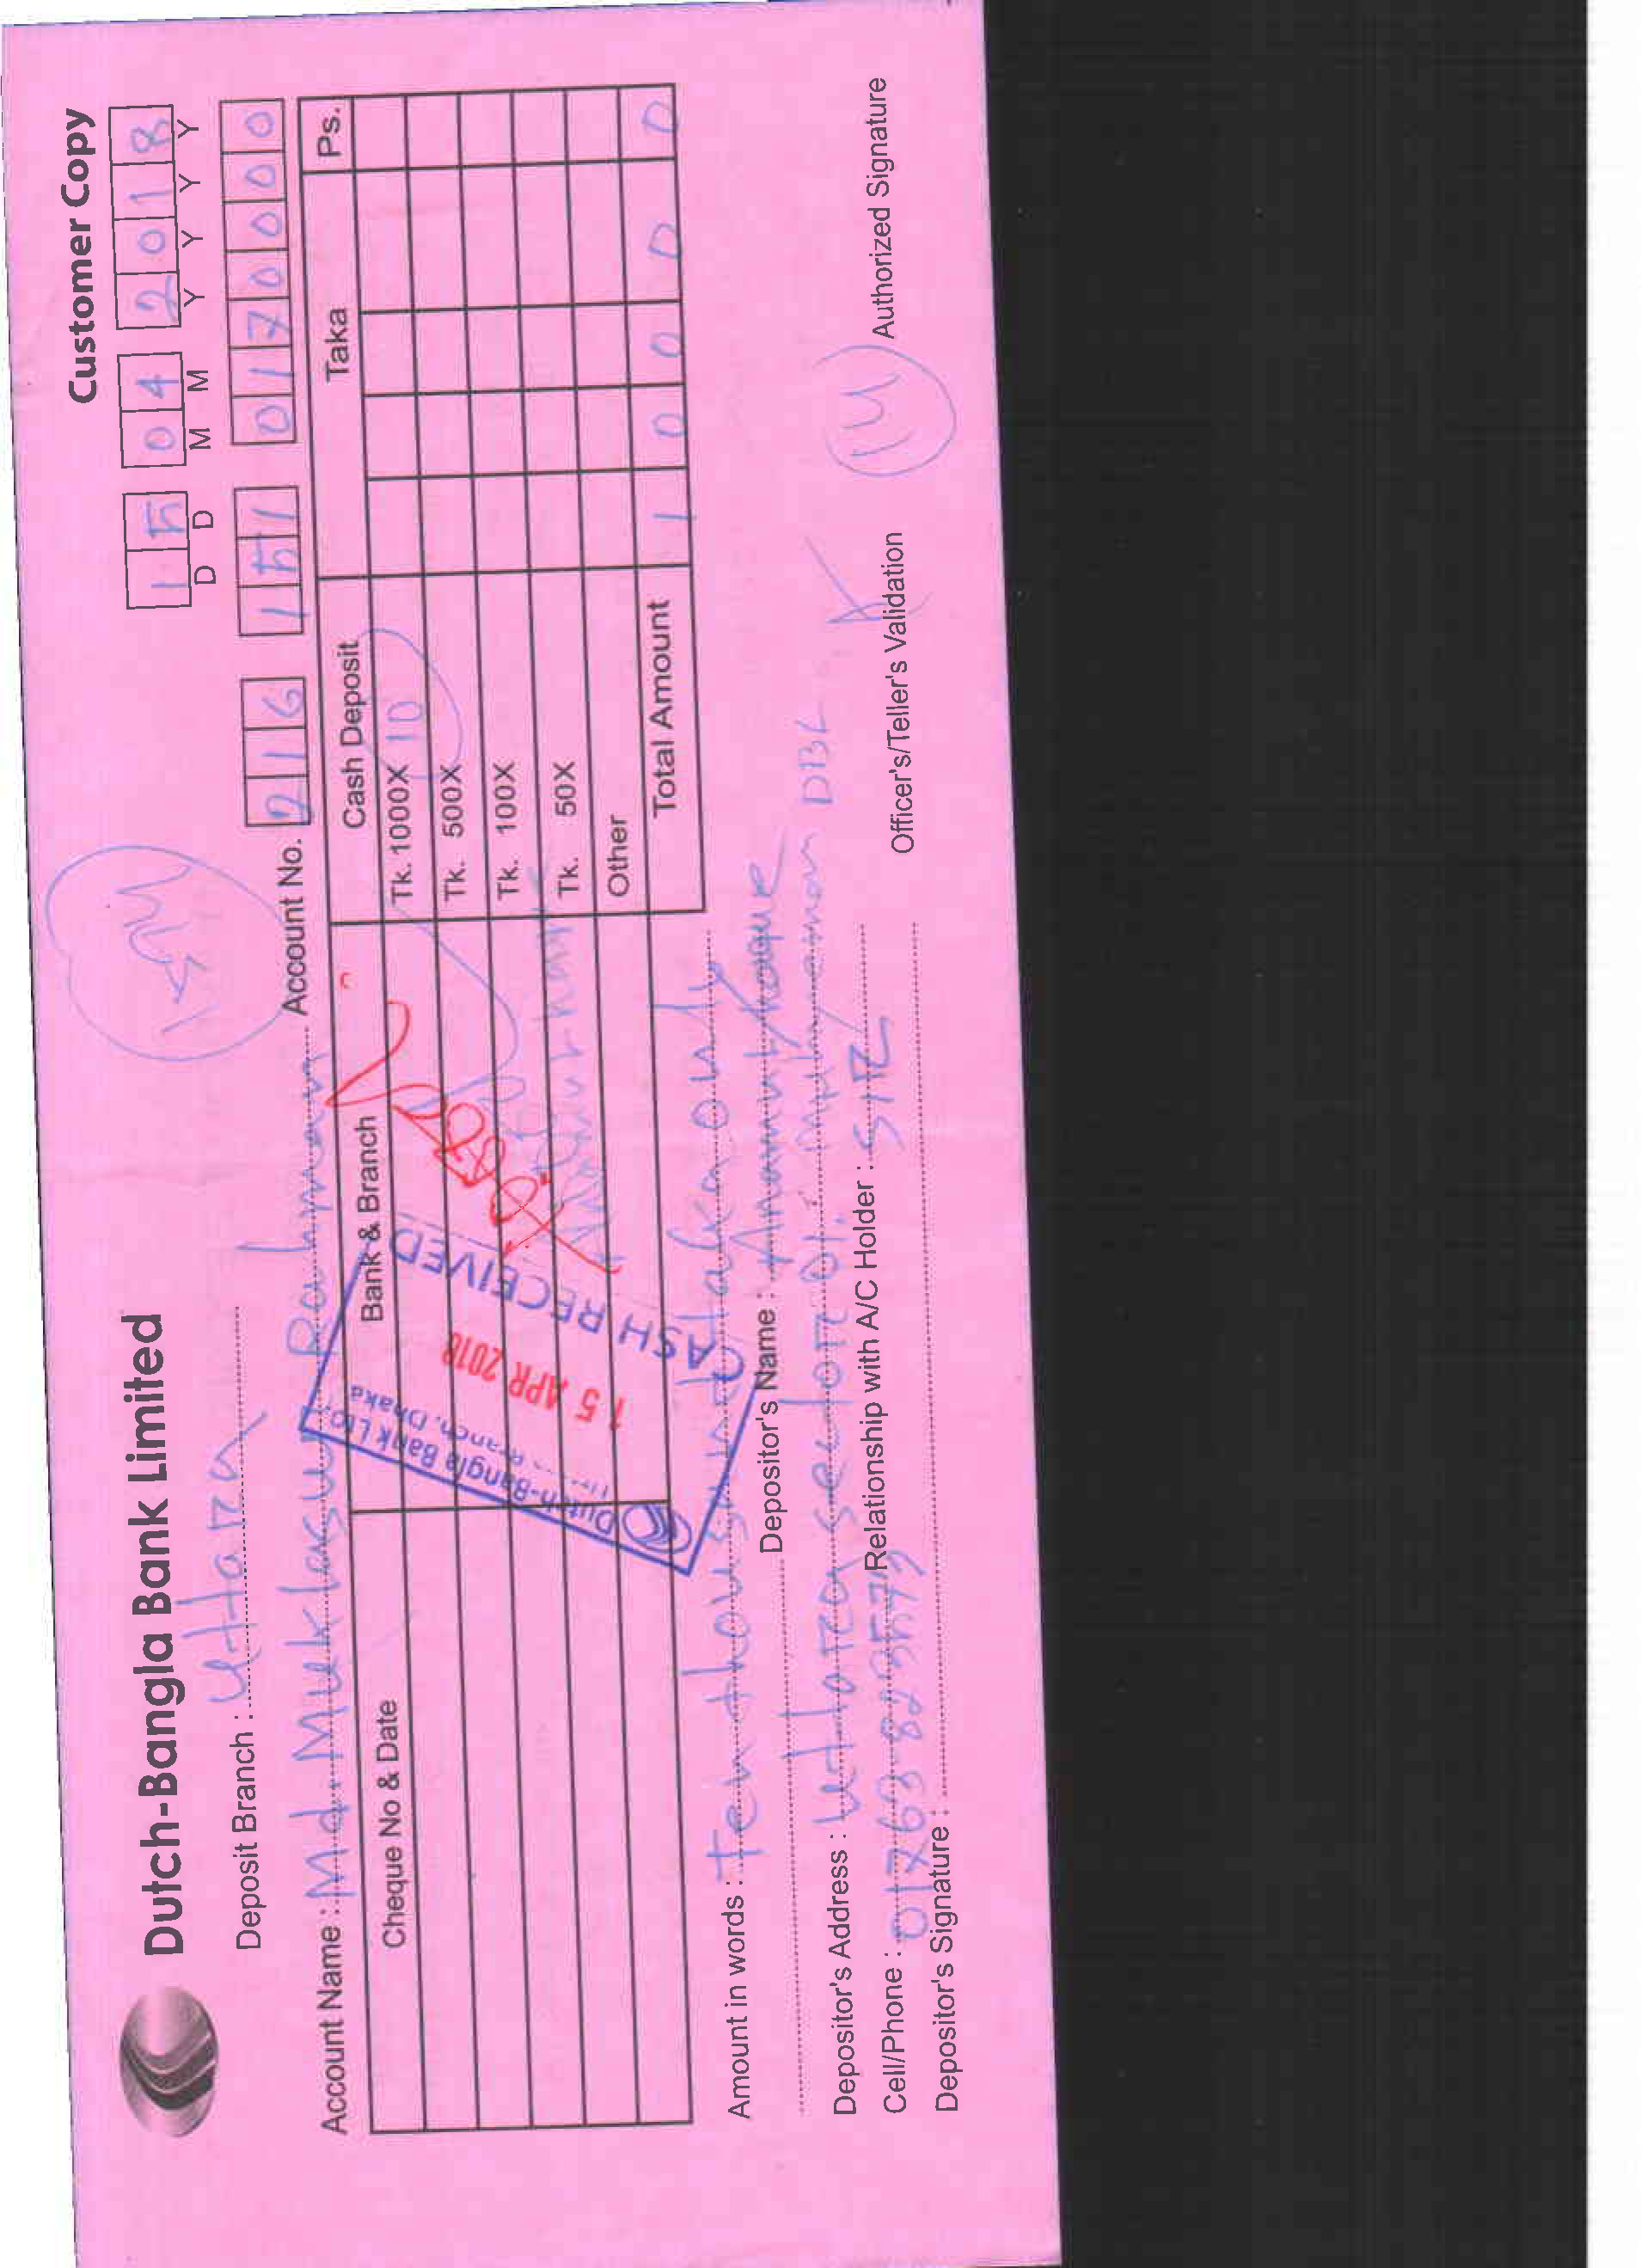 Customer Copy
Dutch-Bangla Bank Limited
15 04 2018
D D M M Y Y Y Y
Deposit Branch : Uttara
Account Name : Md. Muklasur Rahman Account No. 216 151 0170000
Cheque No & Date Bank & Branch Cash Deposit Taka Ps.
Tk. 1000X 10
Tk. 500X
Tk. 100X
Tk. 50X
Other
Total Amount 1 0 0 0 0 0
Dutch-Bangla Bank Ltd.
Branch, Dhaka
15 APR 2018
CASH RECEIVED
Amount in words : Ten thousand taka only
Depositor's Name :
Depositor's Address : Uttara sector
Cell/Phone : Relationship with A/C Holder :
Depositor's Signature : Officer's/Teller's Validation Authorized Signature